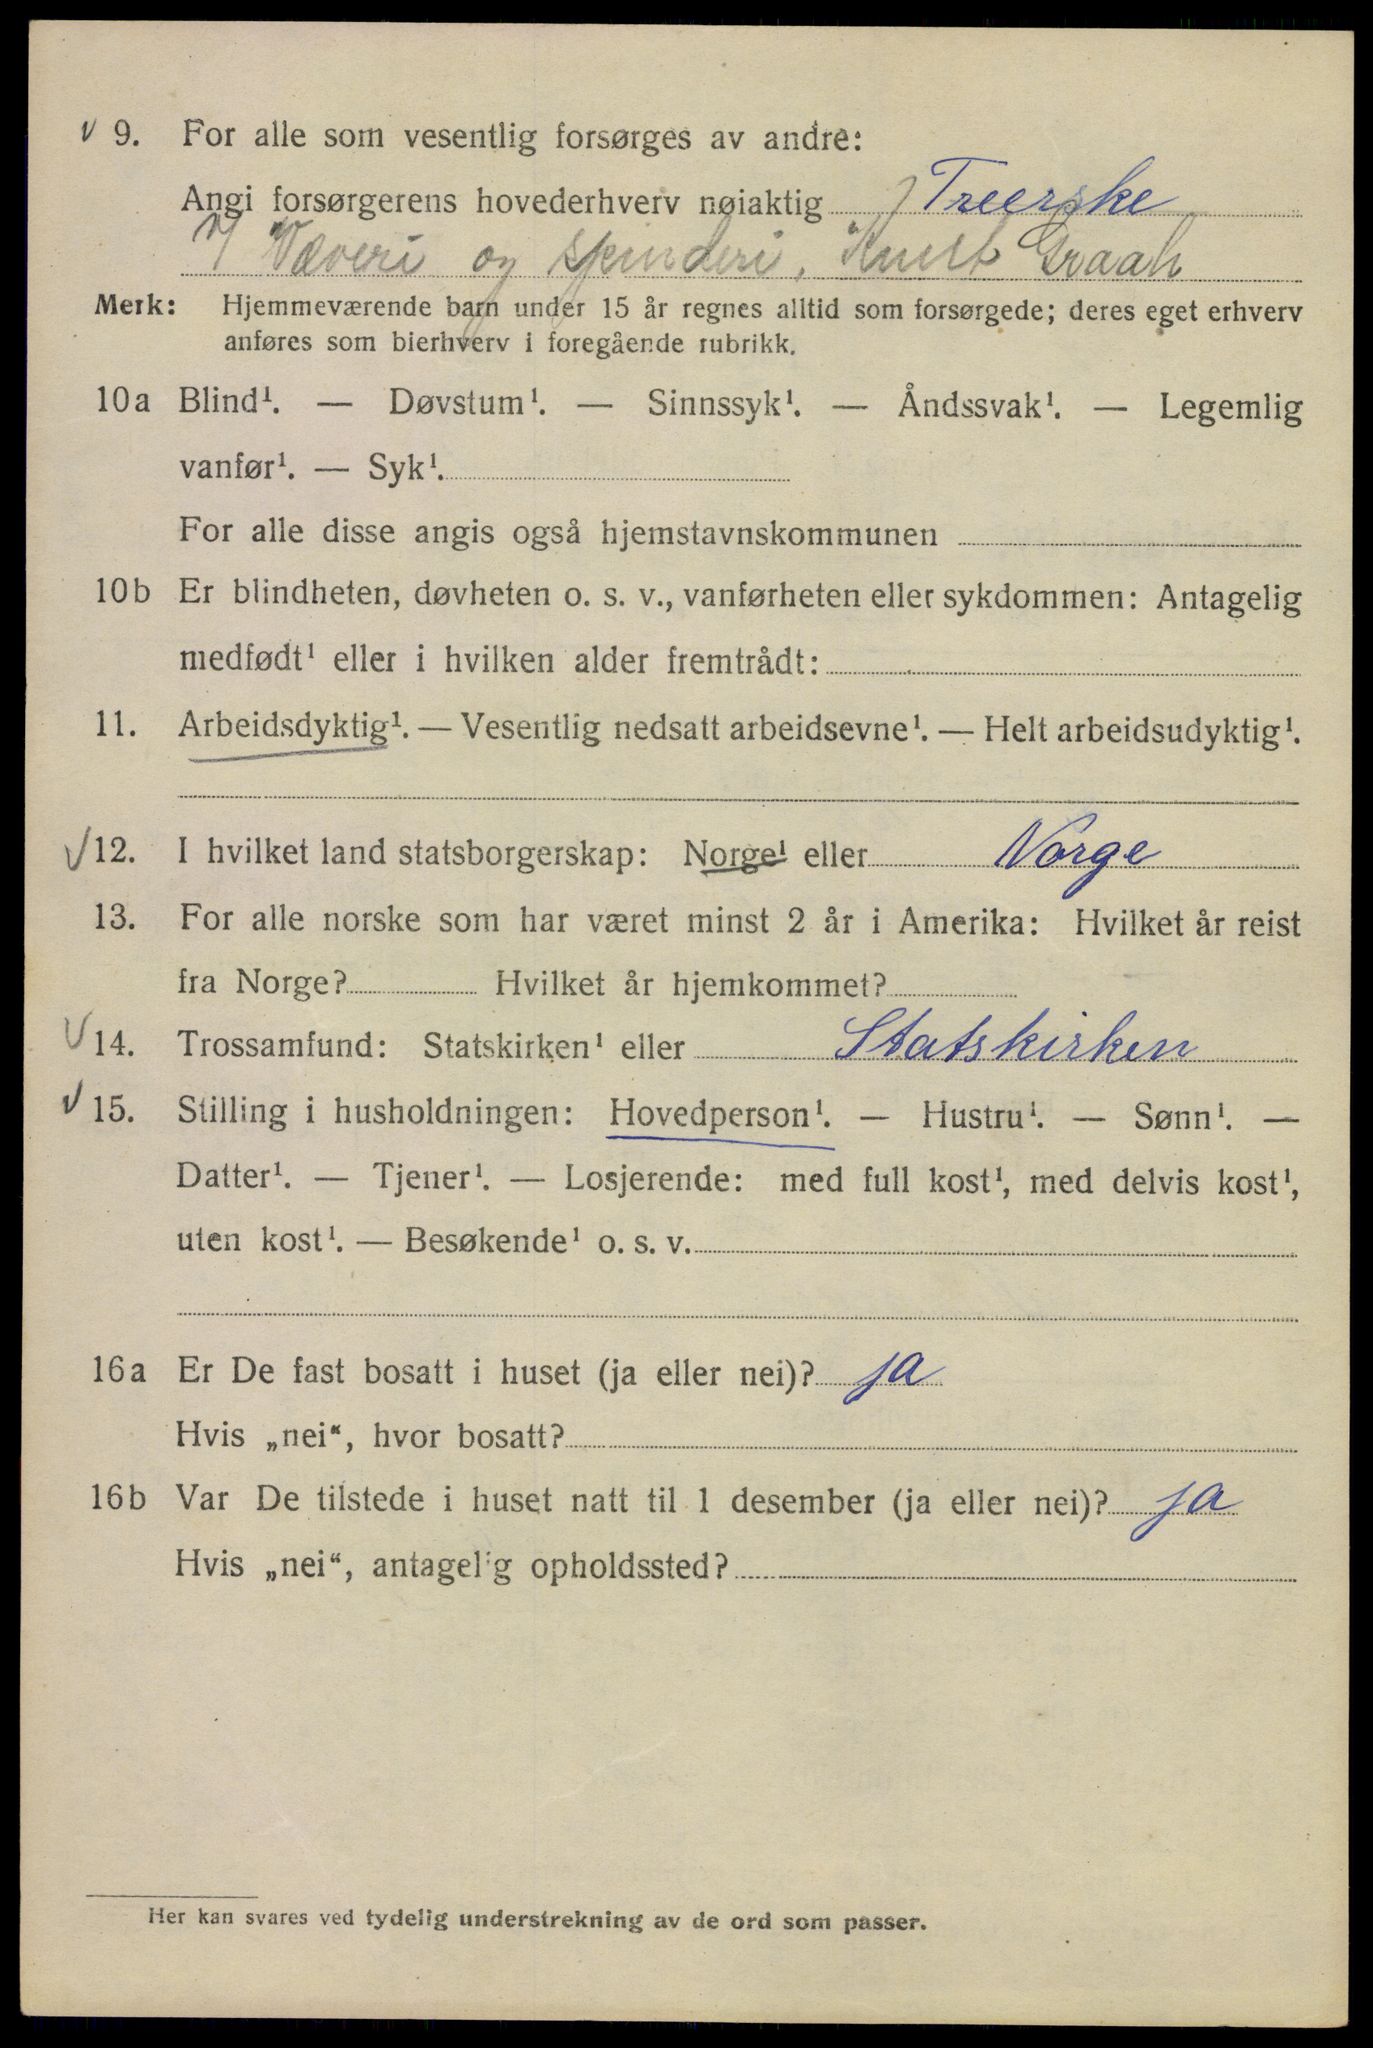 v 9. For alle som vesentlig forsørges av andre:
Angi forsørgerens hovederhverv nøiaktig Treerske
v/ Væveri og spinderi, Knut Graah
Merk: Hjemmeværende barn under 15 år regnes alltid som forsørgede; deres eget erhverv
anføres som bierhverv i foregående rubrikk.
10a Blind¹. — Døvstum¹. — Sinnssyk¹. — Åndssvak¹. — Legemlig
vanfør¹. — Syk¹.
For alle disse angis også hjemstavnskommunen
10b Er blindheten, døvheten o. s. v., vanførheten eller sykdommen: Antagelig
medfødt¹ eller i hvilken alder fremtrådt:
11. Arbeidsdyktig¹. — Vesentlig nedsatt arbeidsevne¹. — Helt arbeidsudyktig¹.
v 12. I hvilket land statsborgerskap: Norge¹ eller Norge
13. For alle norske som har været minst 2 år i Amerika: Hvilket år reist
fra Norge? Hvilket år hjemkommet?
v 14. Trossamfund: Statskirken¹ eller Statskirken
v 15. Stilling i husholdningen: Hovedperson¹. — Hustru¹. — Sønn¹. —
Datter¹. — Tjener¹. — Losjerende: med full kost¹, med delvis kost¹,
uten kost¹. — Besøkende¹ o. s. v.
16a Er De fast bosatt i huset (ja eller nei)? ja
Hvis „nei“, hvor bosatt?
16b Var De tilstede i huset natt til 1 desember (ja eller nei)? ja
Hvis „nei“, antagelig opholdssted?
Her kan svares ved tydelig understrekning av de ord som passer.